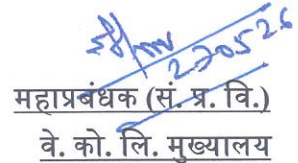 270526
महाप्रबंधक (सं. प्र. वि.)
वे. को. लि. मुख्यालय